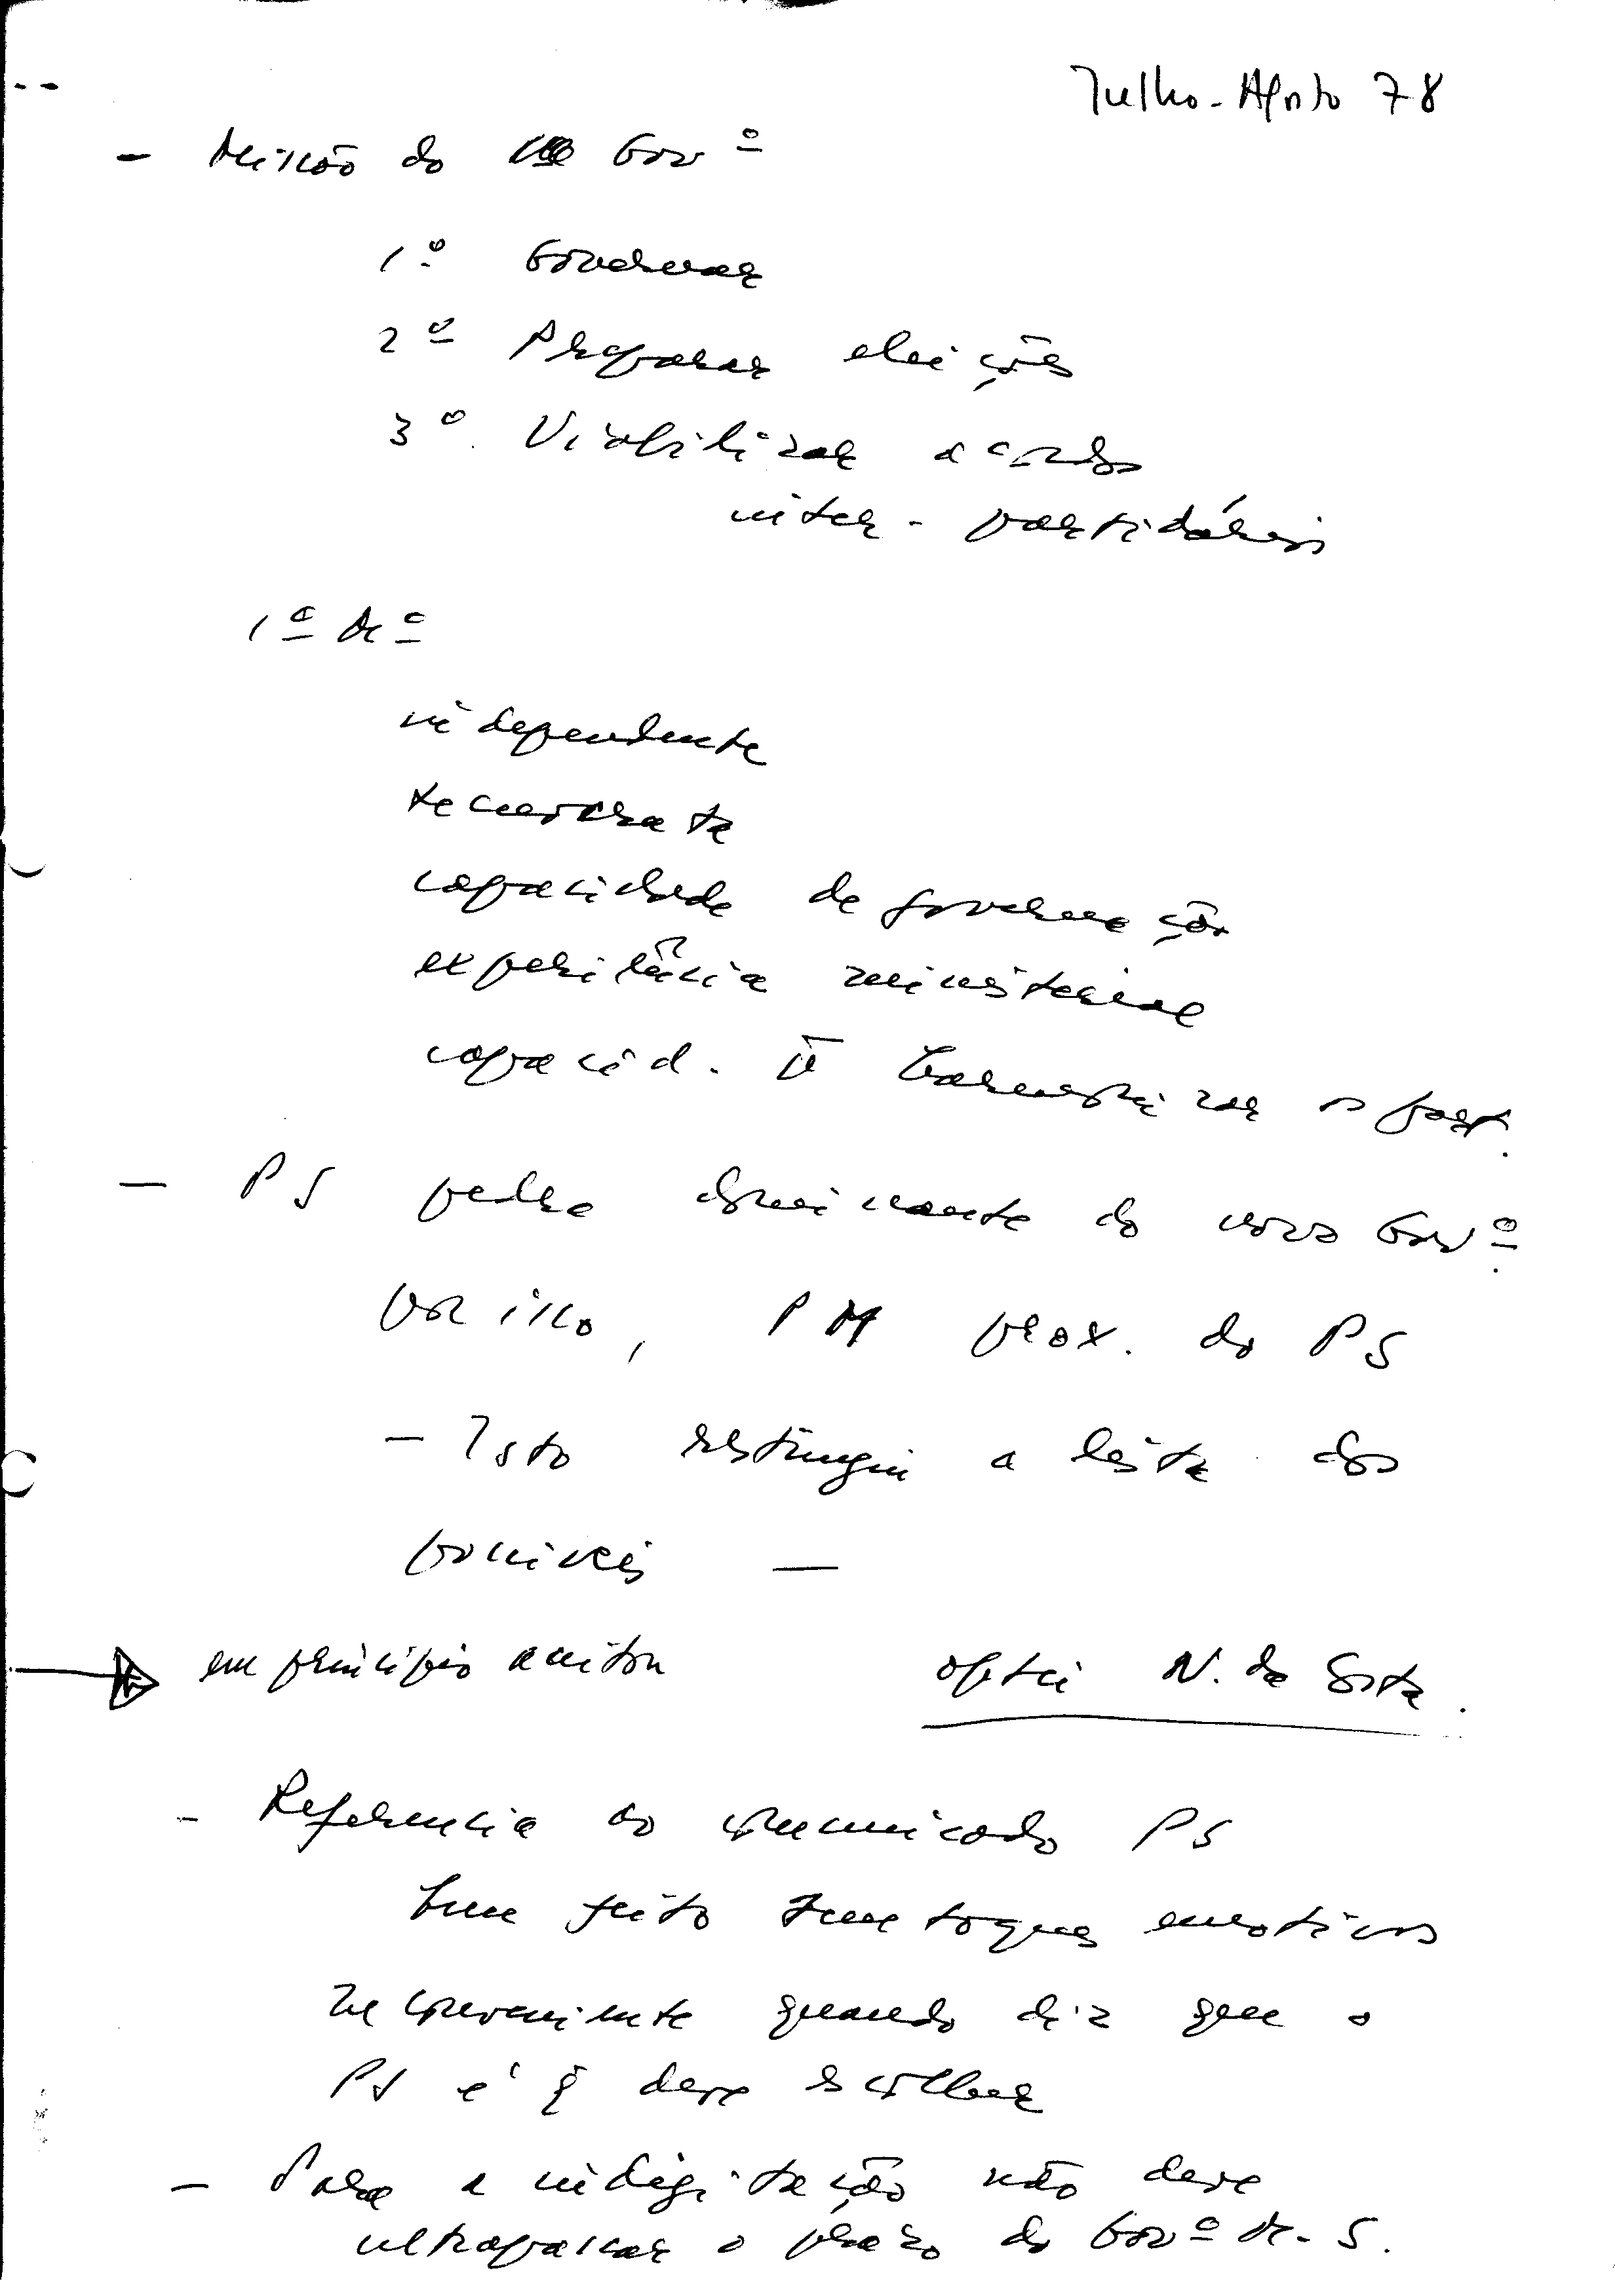 Julho-Agosto 78
- Missão do Govº
1º Governar
2º Preparar eleições
3º. Viabilizar acordos
inter-partidários
1º Mº
independente
tecnocrata
capacidade de governação
experiência ministerial
capacid. harmonizar os part.
- PS pedra dominante do novo Govº.
por isso, PM prox. do PS
- Isto restringiu a lista dos
poníveis -
em princípio aceitou optei N. da Costa.
- Referencia ao comunicado PS
bem feito toques emotivos
inconveniente quando diz que o
PS é q deve escolher
- Para a indigitação não deve
ultrapassar o prazo do Govº M.S.